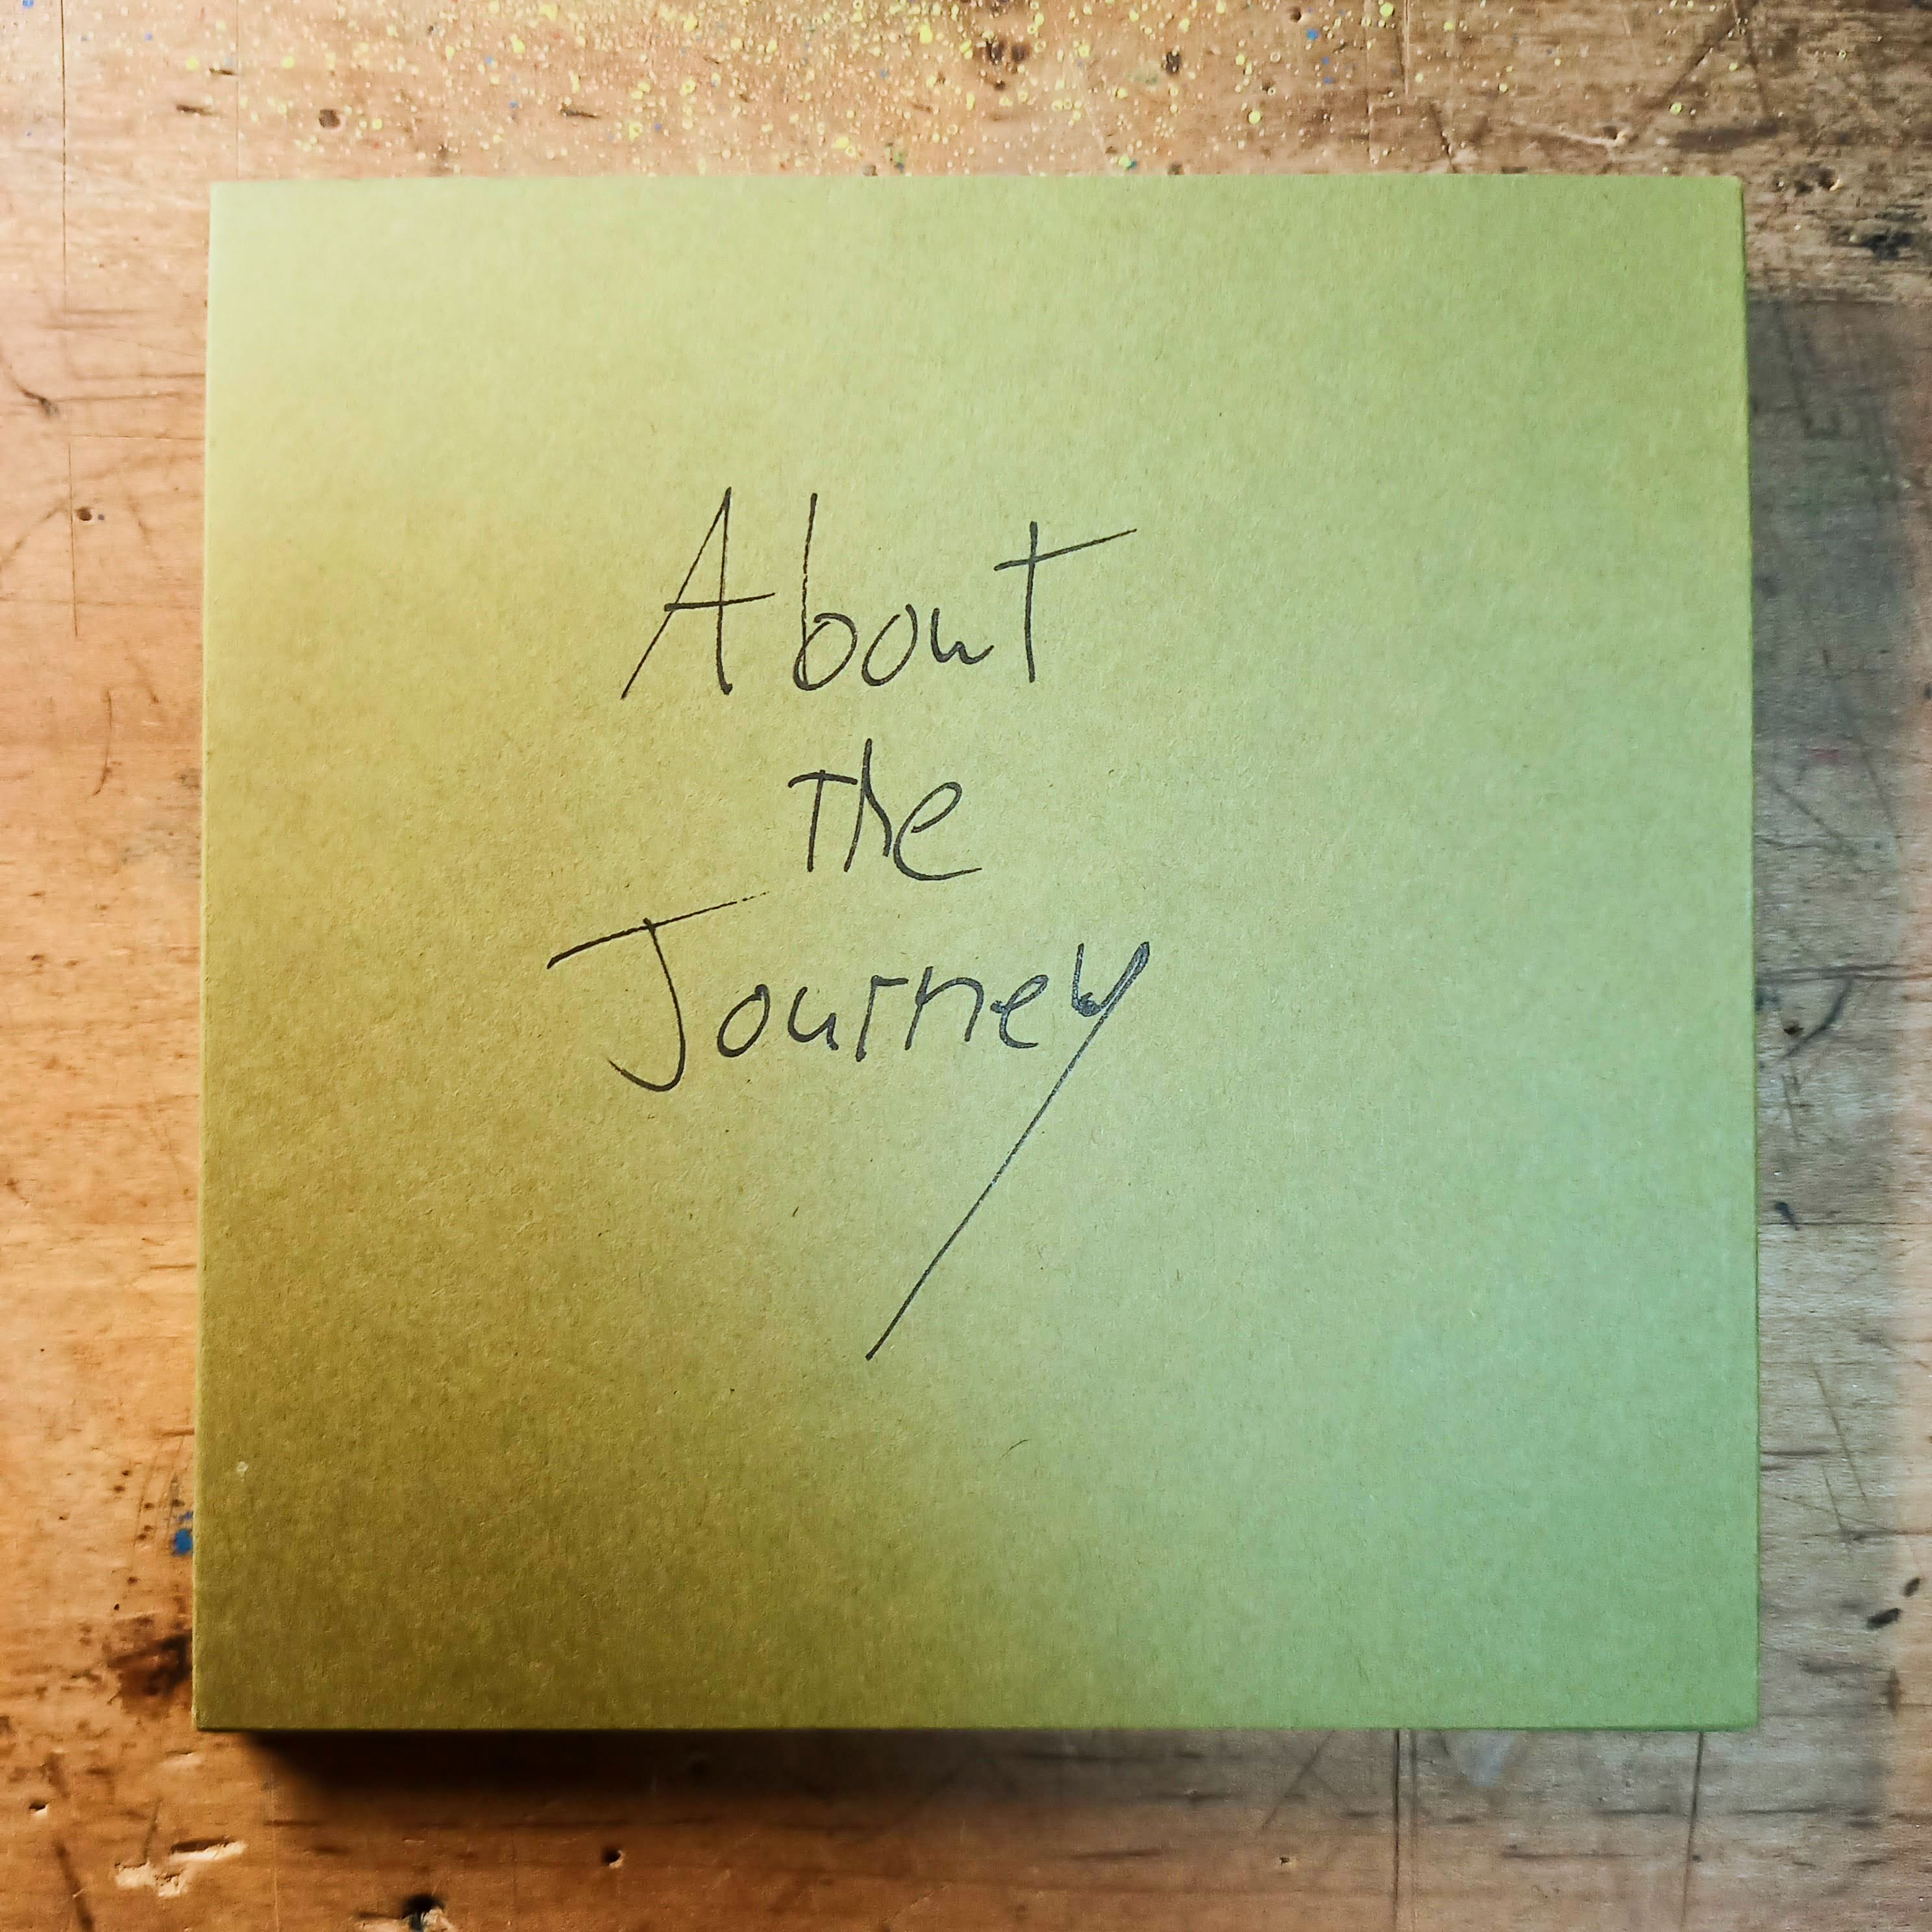 About
The
Journey